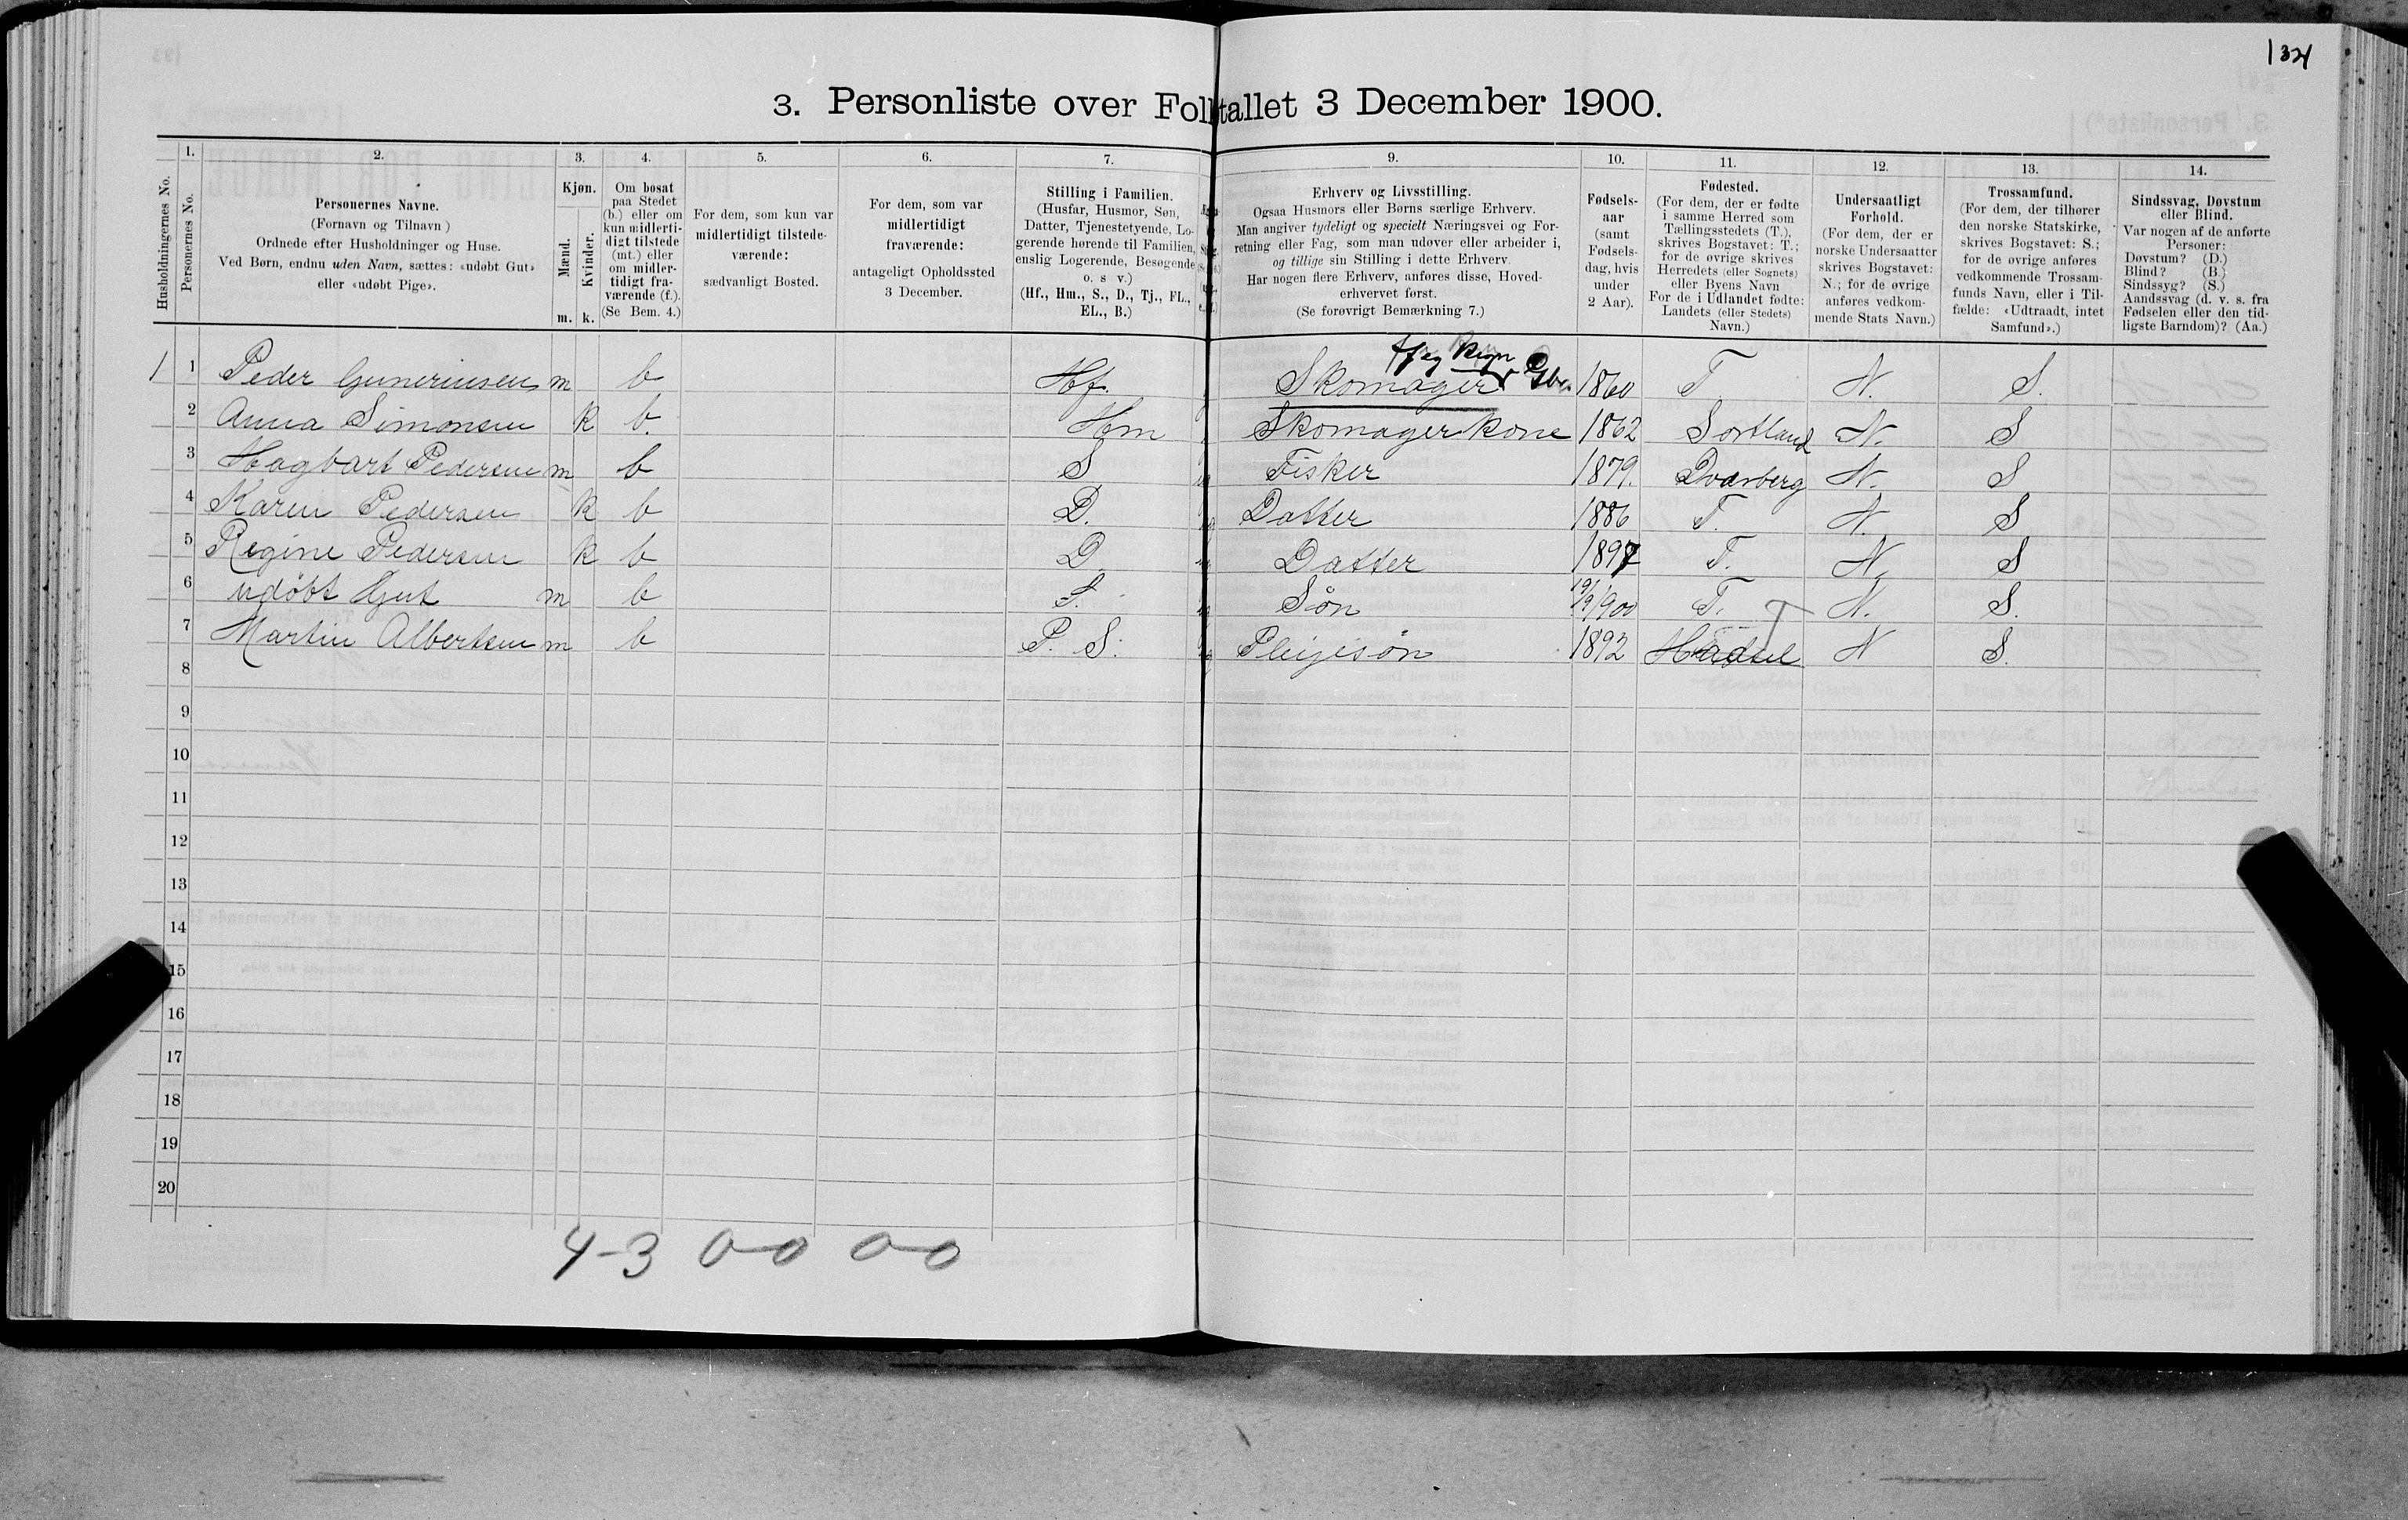 134
3. Personliste over Folketallet 3 December 1900.
1. 2. 3. 4. 5. 6. 7. 9. 10. 11. 12. 13. 14.
Husholdningernes No.
Personernes No.
Personernes Navne.
(Fornavn og Tilnavn)
Ordnede efter Husholdninger og Huse.
Ved Børn, endnu uden Navn, sættes: «udøbt Gut»
eller «udøbt Pige».
Kjøn.
Mænd.
Kvinder.
m. k.
Om bosat
paa Stedet
(b.) eller om
kun midlerti-
digt tilstede
(mt.) eller
om midler-
tidigt fra-
værende (f.).
(Se Bem. 4.)
For dem, som kun var
midlertidigt tilstede-
værende:
sædvanligt Bosted.
For dem, som var
midlertidigt
fraværende:
antageligt Opholdssted
3 December.
Stilling i Familien.
(Husfar, Husmor, Søn,
Datter, Tjenestetyende, Lo-
gerende hørende til Familien,
enslig Logerende, Besøgende
o. s v.)
(Hf., Hm., S., D., Tj., FL.,
EL., B.)
Erhverv og Livsstilling.
Ogsaa Husmors eller Børns særlige Erhverv.
Man angiver tydeligt og specielt Næringsvei og For-
retning eller Fag, som man udøver eller arbeider i,
og tillige sin Stilling i dette Erhverv.
Har nogen flere Erhverv, anføres disse, Hoved-
erhvervet først.
(Se forøvrigt Bemærkning 7.)
Fødsels-
aar
(samt
Fødsels-
dag, hvis
under
2 Aar).
Fødested.
(For dem, der er fødte
i samme Herred som
Tællingsstedets (T.),
skrives Bogstavet: T.;
for de øvrige skrives
Herredets (eller Sognets)
eller Byens Navn
For de i Udlandet fødte:
Landets (eller Stedets)
Navn.)
Undersaatligt
Forhold.
(For dem, der er
norske Undersaatter
skrives Bogstavet:
N.; for de øvrige
anføres vedkom-
mende Stats Navn.)
Trossamfund.
(For dem, der tilhører
den norske Statskirke,
skrives Bogstavet: S.;
for de øvrige anføres
vedkommende Trossam-
funds Navn, eller i Til-
fælde: «Udtraadt, intet
Samfund».)
Sindssvag, Døvstum
eller Blind.
Var nogen af de anførte
Personer:
Døvstum? (D.)
Blind? (B.)
Sindssyg? (S.)
Aandssvag (d. v. s. fra
Fødselen eller den tid-
ligste Barndom)? (Aa.)
1 1 Peder Gunerinsen m b Hf. Skomager Gbr. 1860 T N. S.
2 Anna Simonsen k b. Hm Skomagerkone 1862 Sortland N. S
3 Hagbart Pedersen m b S Fisker 1879. Dverberg N. S
4 Karen Pedersen k b D. Datter 1886 T. N. S
5 Regine Pedersen k b D. Datter 1897 T. N. S
6 udøbt Gut m b S. Søn 19/9 1900 T. N. S.
7 Martin Albertsen m b P. S. Pleijesøn 1892 Hadsel T N S.
8
9
10
11
12
13
14
15
16
17
18
19
20
4-3 0-0 0-0